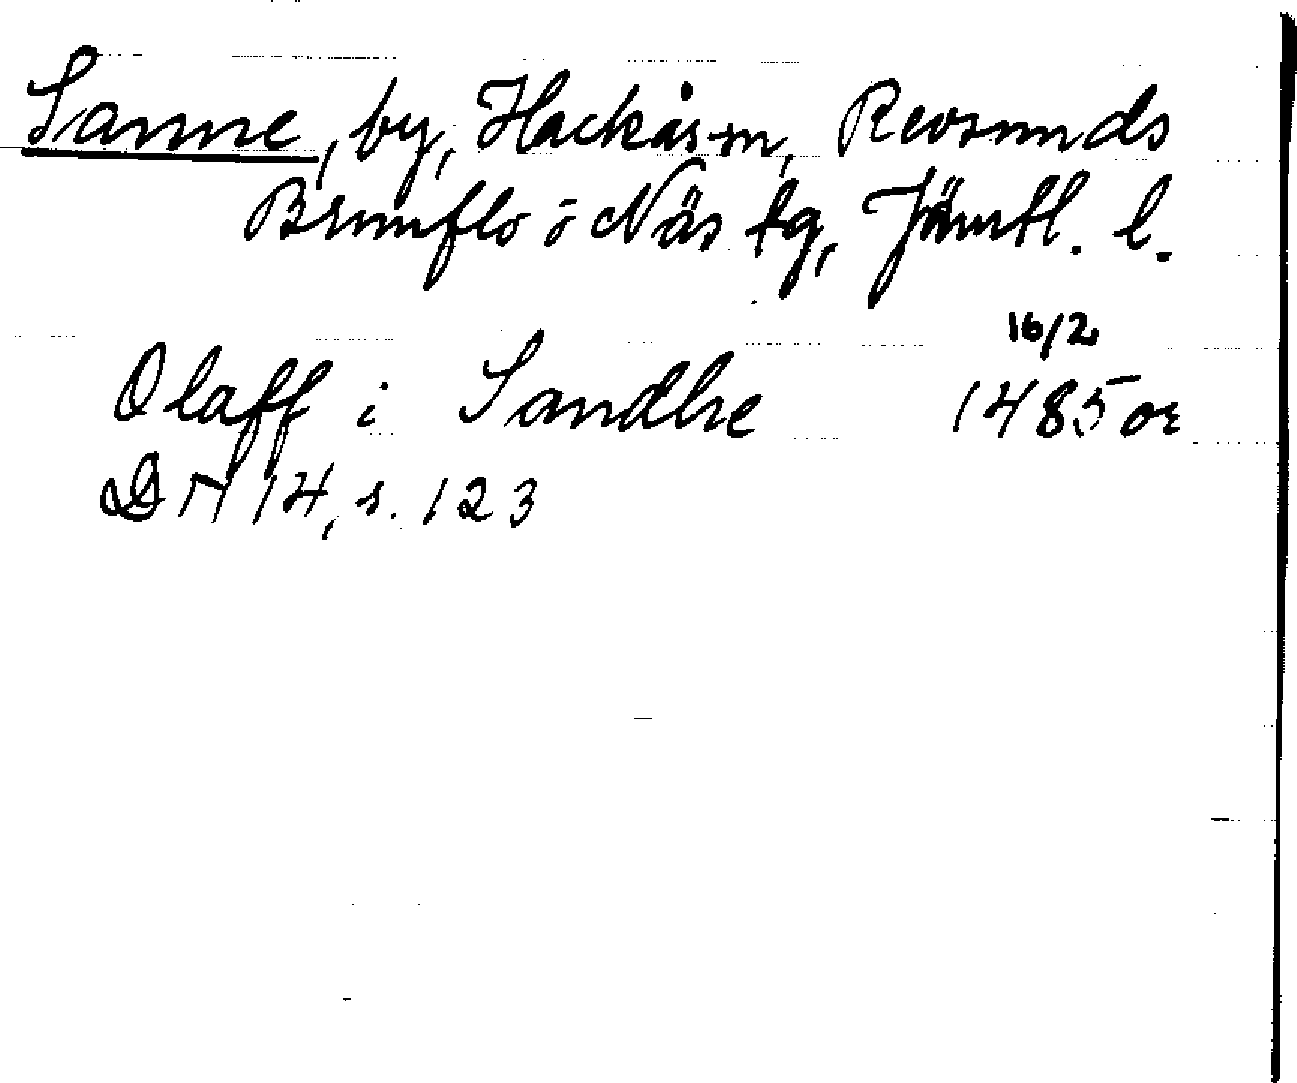 Sanne, by, Hackås sn, Revsunds
Brunflo o Näs tg, Jämtl. l.
16/2
Olaff i Sandhe 1485 or
DN 14, s. 123